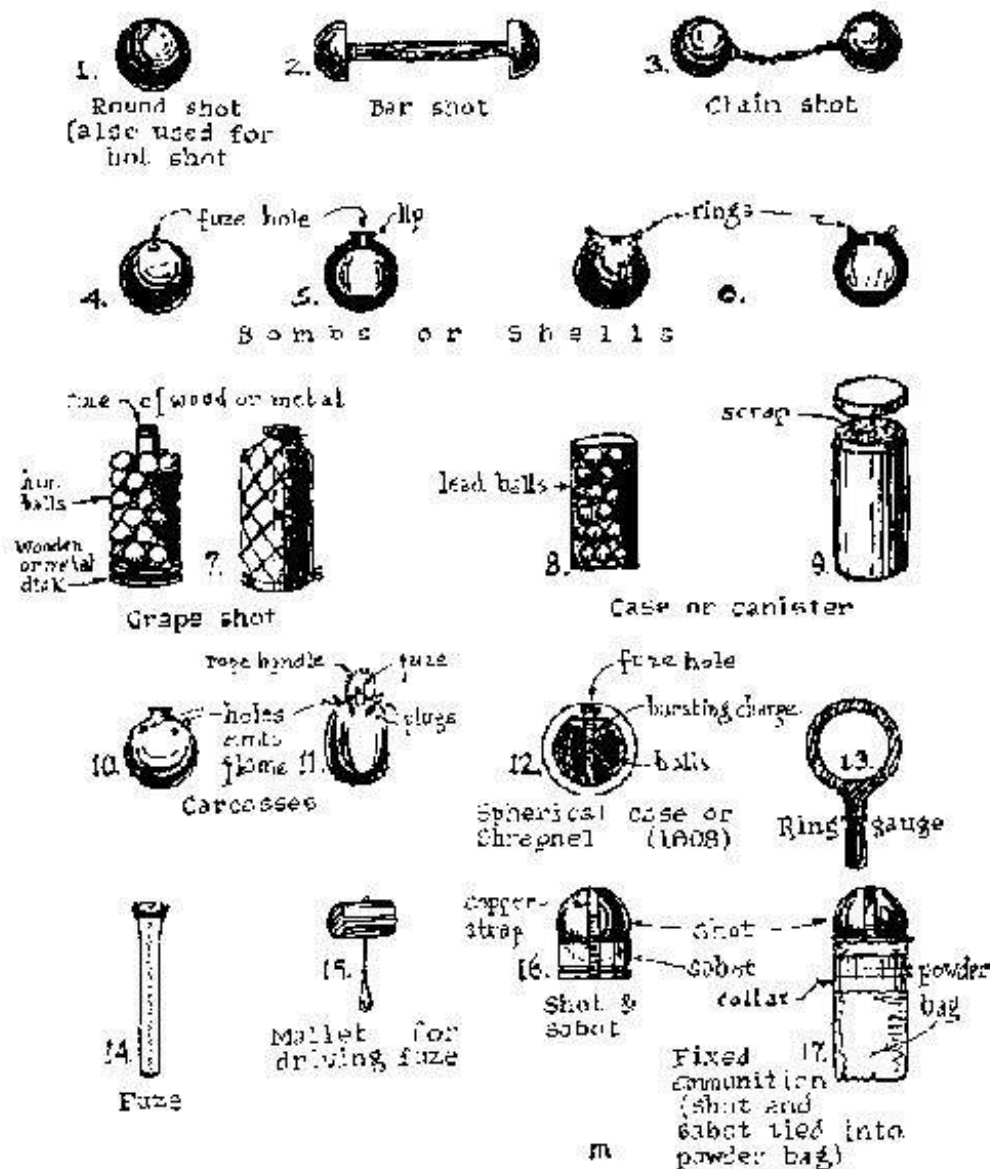 1.
Round shot
(also used for
hot shot
2.
Bar shot
3.
Chain shot
fuze hole
lip
rings
4.
5.
6.
Bombs or Shells
fuze of wood or metal
iron
balls
Wooden
or metal
disk
7.
Grape shot
lead balls
8.
scrap
9.
Case or canister
rope handle
fuze
holes
emit
flame
plugs
10.
11.
Carcasses
fuze hole
bursting charge
balls
12.
Spherical case or
Shrapnel (1808)
13.
Ring gauge
14.
Fuze
15.
Mallet for
driving fuze
copper
strap
shot
sabot
16.
Shot &
sabot
collar
powder
bag
17.
Fixed
ammunition
(shot and
sabot tied into
powder bag)
m